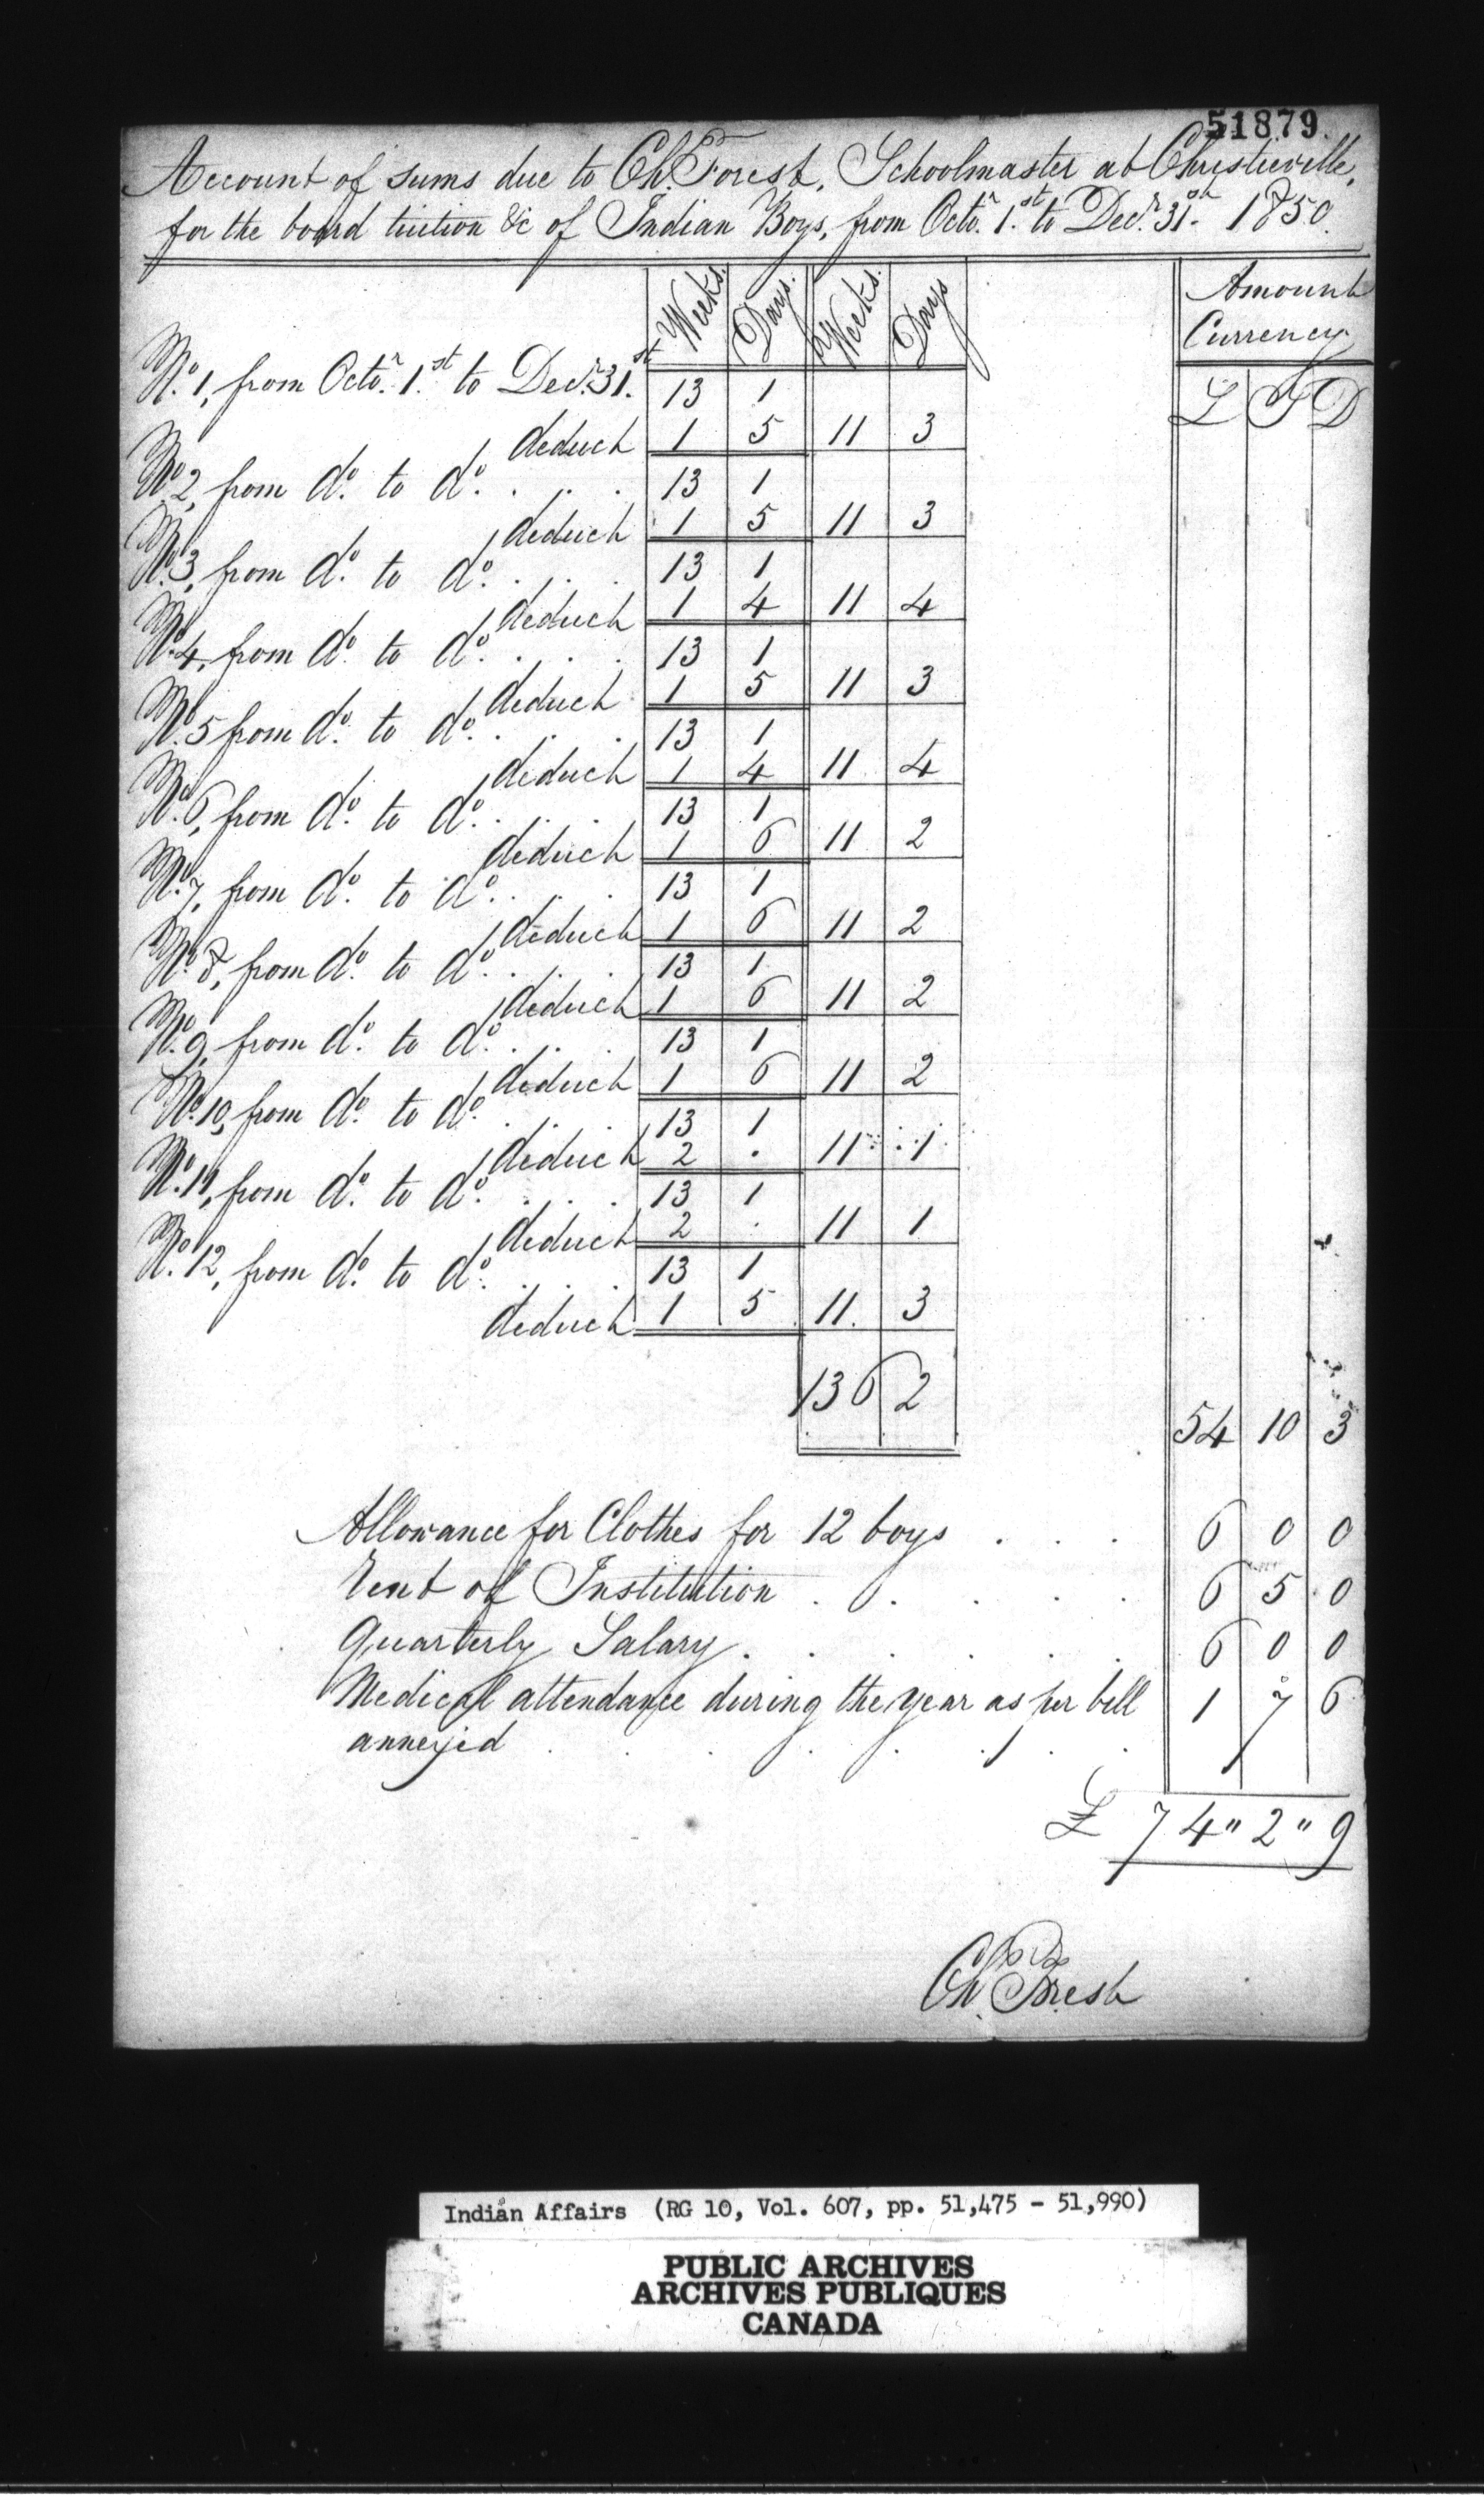 51879.
Account of sums due to Ch. Forest, Schoolmaster at Christieville,
for the board tuition &c of Indian Boys, from Octo.r 1.st to Dec.r 31.st 1850.
Weeks. Days. Weeks. Days Amount
Currency
£ S D
No. 1, from Octo.r 1.st to Dec.r 31.st 13 1
deduct 1 5 11 3
No. 2, from do. to do. . . . 13 1
deduct 1 5 11 3
No. 3, from do. to do. . . . 13 1
deduct 1 4 11 4
No. 4, from do. to do. . . . 13 1
deduct 1 5 11 3
No. 5 from do. to do. . . . 13 1
deduct 1 4 11 4
No. 6, from do. to do. . . . 13 1
deduct 1 6 11 2
No. 7, from do. to do. . . . 13 1
deduct 1 6 11 2
No. 8, from do. to do. . . . 13 1
deduct 1 6 11 2
No. 9, from do. to do. . . . 13 1
deduct 1 6 11 2
No. 10, from do. to do. . . . 13 1
deduct 2 . 11 1
No. 11, from do. to do. . . . 13 1
deduct 2 . 11 1
No. 12, from do. to do. . . . 13 1
deduct 1 5 11 3
136 2
54 10 3
Allowance for Clothes for 12 boys . . . 6 0 0
Rent of Institution . . . . . 6 5 0
Quarterly Salary . . . . . . 6 0 0
Medical attendance during the year as per bill 1 7 6
annexed . . . . . . .
£ 74 " 2 " 9
Ch. Forest
Indian Affairs (RG 10, Vol. 607, pp. 51,475 - 51,990)
PUBLIC ARCHIVES
ARCHIVES PUBLIQUES
CANADA